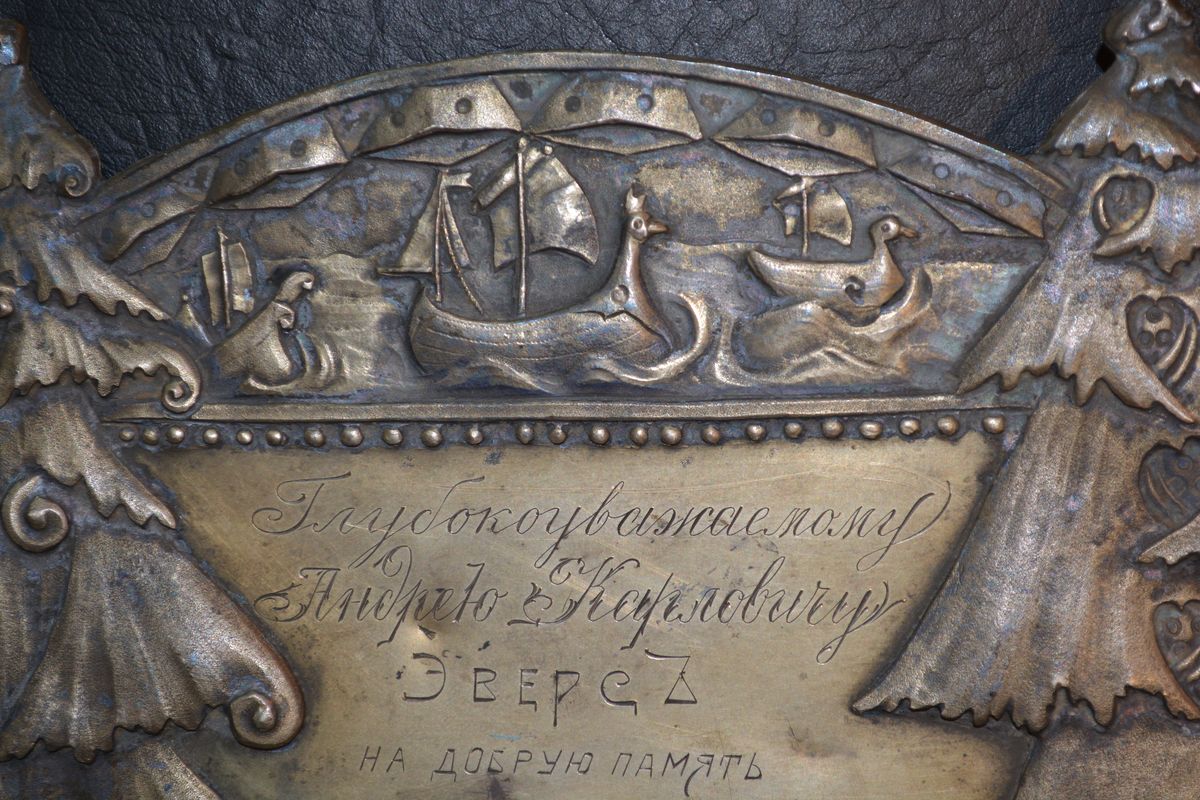 Глубокоуважаемому
Андрею Карловичу
Эверсъ
НА ДОБРУЮ ПАМЯТЬ